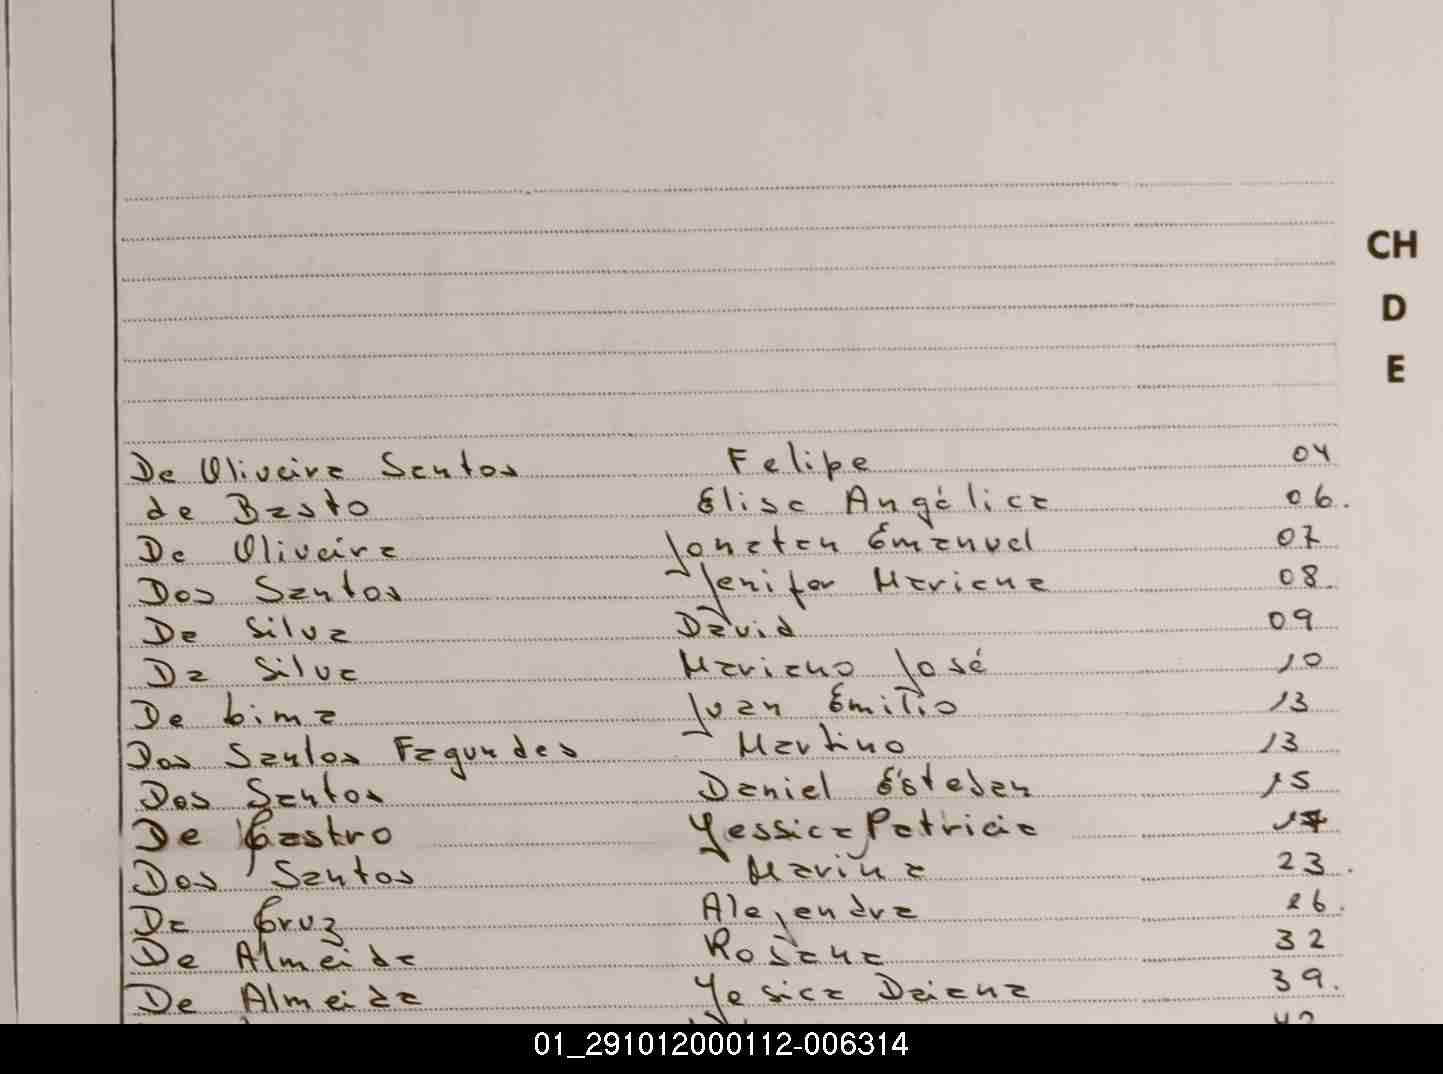 CH
D
E
De Oliveira Santos Felipe 04
de Basto Elisa Angélica 06.
De Oliveira Jonatan Emanuel 07
Dos Santos Jenifer Mariana 08.
Da Silva David 09
Da Silva Mariano José 10
De Lima Juan Emilio 13
Dos Santos Fagundes Martino 13
Dos Santos Daniel Esteban 15
De Castro Yessica Patricia 17
Dos Santos Marina 23.
Da Cruz Alejandra 26.
De Almeida Rosana 32
De Almeida Yesica Daiana 39.
01_291012000112-006314